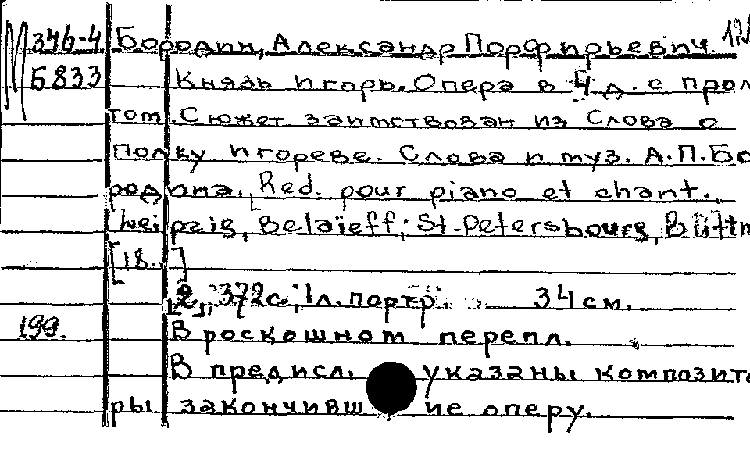 М 346-4 Бородин, Александр Порфирьевич 12
Б833 Князь Игорь. Опера в 4 д. с прол
гом. Сюжет заимствован из Слова о
Полку Игореве. Слова и муз. А.П.Бо
родина. Red. pour piano et chant.
Leipzig, Belaïeff; St-Petersbourg, Büttn
[18..]
2, 372с., 1л. портр. 34 см.
199. В роскошном перепл.
В предисл. указаны композито
ры закончившие оперу.